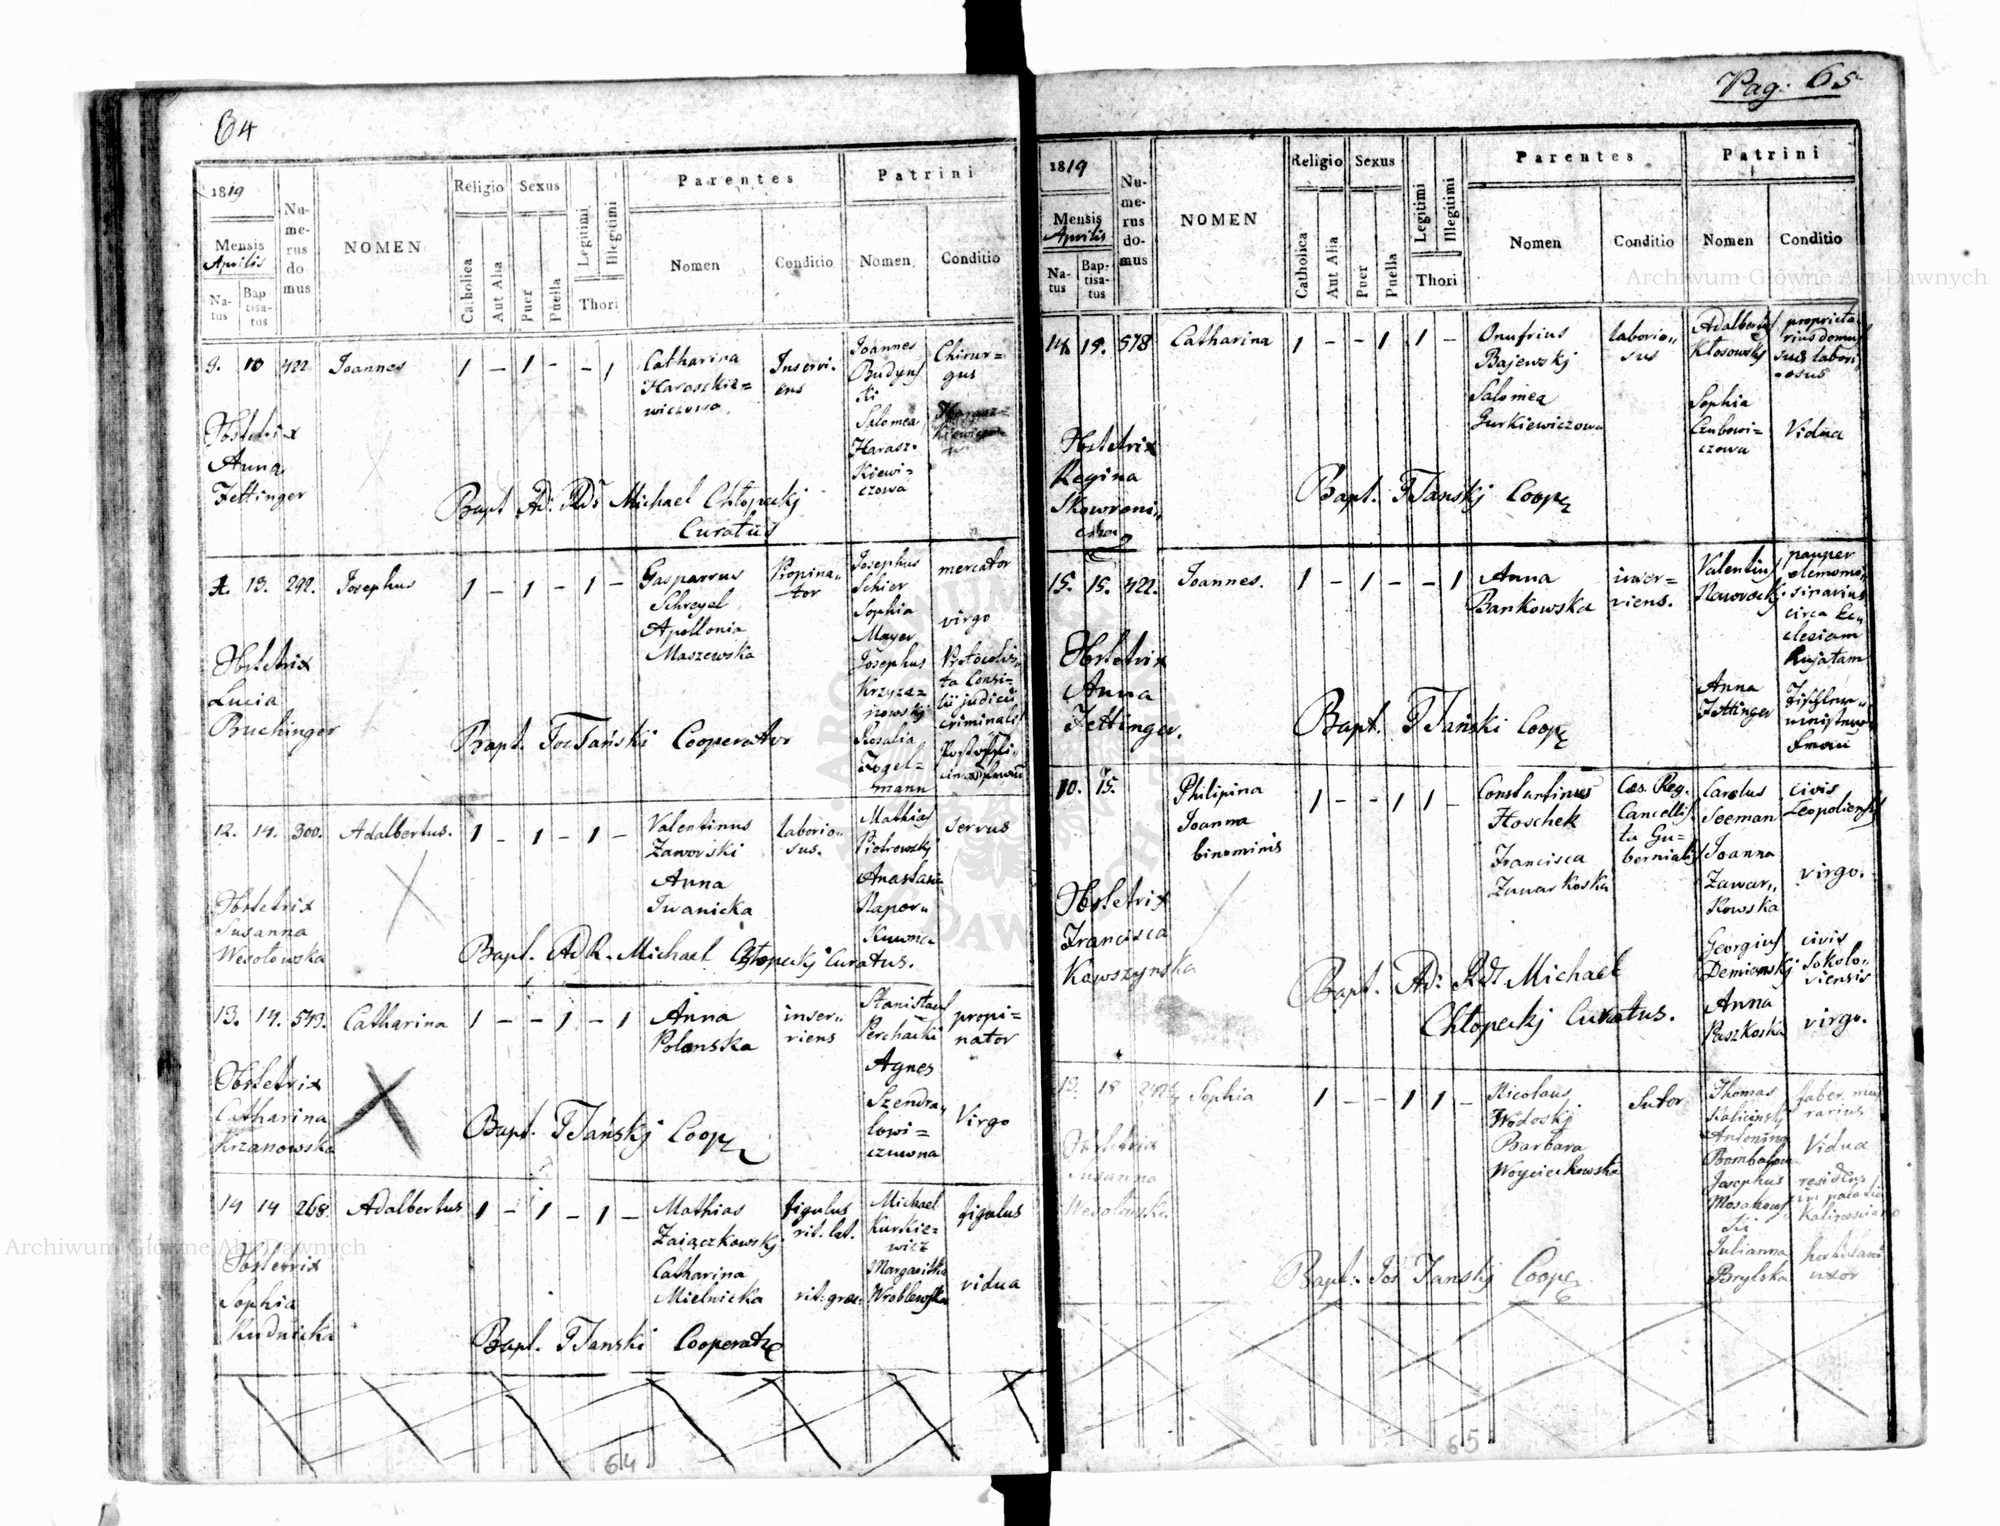 64
1819
Mensis
Aprilis
Na-
tus
Bap
tisa-
tus
Nu-
me-
rus
do-
mus
NOMEN
Religio
Catholica
Aut Alia
Sexus
Puer
Puella
Legitimi
Illegitimi
Thori
Parentes
Nomen
Conditio
Patrini
Nomen
Conditio
9. 10 422 Joannes 1 - 1 - - 1
Catharina
Haraszkie=
wiczowa
Inservi-
ens
Joannes
Budyns
ki
Salomea
Harasz-
Kiewi-
czowa
Chirur=
gus
Obstetrix
Anna
Fettinger
Bapt Ad: Rds Michael Chłopeckj
Curatus
13. 292. Josephus 1 - 1 - 1 -
Gasparrus
Schreyel
Apollonia
Maszewska
Propina-
tor
Josephus
Schier
Sophia
Mayer
Josephus
Krzyza=
nowskj
Rosalia
Fogel=
mann
mercator
virgo
Obstetrix
Lucia
Bruchinger
Bapt. Jos Tański Cooperator
12. 14. 300. Adalbertus. 1 - 1 - 1 -
Valentinus
Zaworski
Anna
Iwanicka
laborio-
sus.
Mathias
Piotrowskj
Anastasia
servus
Obstetrix
Susanna
Wesołowska
Bapt. Ad R. Michael Chłopeckj Curatus.
13. 14. 543. Catharina 1 - - 1 - 1
Anna
Polanska
inser-
viens
Stanislaus
Perchacki
Agnes
Szendra-
lowi=
czuwna
propi=
nator
Virgo
Obstetrix
Catharina
Krzanowska
Bapt. J Tańskj Coop
14 14 268. Adalbertus 1 - 1 - 1 -
Mathias
Zaiączkowskj
Catharina
Mielnicka
figulus
rit. lat.
rit: grae:
Michael
Kurkie-
wicz
Margaritha
Wroblewska
figulus
vidua
Obstetrix
Sophia
Rudnicka
Bapt. J Tanski Cooperator
64
Pag: 65
1819
Mensis
Aprilis
Na-
tus
Bap-
tisa-
tus
Nu-
me-
rus
do-
mus
NOMEN
Religio
Catholica
Aut Alia
Sexus
Puer
Puella
Legitimi
Illegitimi
Thori
Parentes
Nomen
Conditio
Patrini
Nomen
Conditio
14. 15. 578 Catharina 1 - - 1 1 -
Onufrius
Bajewskj
Salomea
Gurkiewiczowa
laborio-
sus
Adalbertus
Kłosowskj
Sophia
Czubowi=
czowa
proprieta-
rius domus
suae labori-
osus
Vidua
Obstetrix
Regina
Skowroni-
Bapt. J Tanskj Coop
15. 15. 422. Joannes. 1 - 1 - - 1
Anna
Bankowska
inser=
viens.
Valentinus
Anna
Fettinger
pauper
elemomo-
sinarius
circa Ec-
clesiam
Obstetrix
Anna
Fettinger.
Bapt. J Tański Coop
10. 15. Philipina
Joanna
binominis
1 - - 1 1 -
Constantinus
Hoschek
Francisca
Zawarkoska
Cæs. Reg.
Cancellis
ta Gu=
bernialis
Carolus
Seeman
Joanna
Zawar-
kowska
Georgius
Demianskj
Anna
Paszkoska
civis
Leopoliensis
virgo.
civis
Sokolo-
viensis
virgo.
Obstetrix
Francisca
Kawszynska
Bapt. Ad: Rds Michael
Chłopeckj Curatus.
13. 18 Sophia 1 - - 1 1 -
Nicolaus
Wodoskj
Barbara
Woyciechowska
Sutor
Thomas
Kalicinskj
Antonina
Josephus
Mosakows
ki
Julianna
Brylska
faber mu-
rarius
Vidua
residens
in palatio
hortulani
uxor
Obstetrix
Susanna
Wesołowska
Bapt: Jos Tanskj Coop
65
Archiwum Główne Akt Dawnych
Archiwum Główne Akt Dawnych